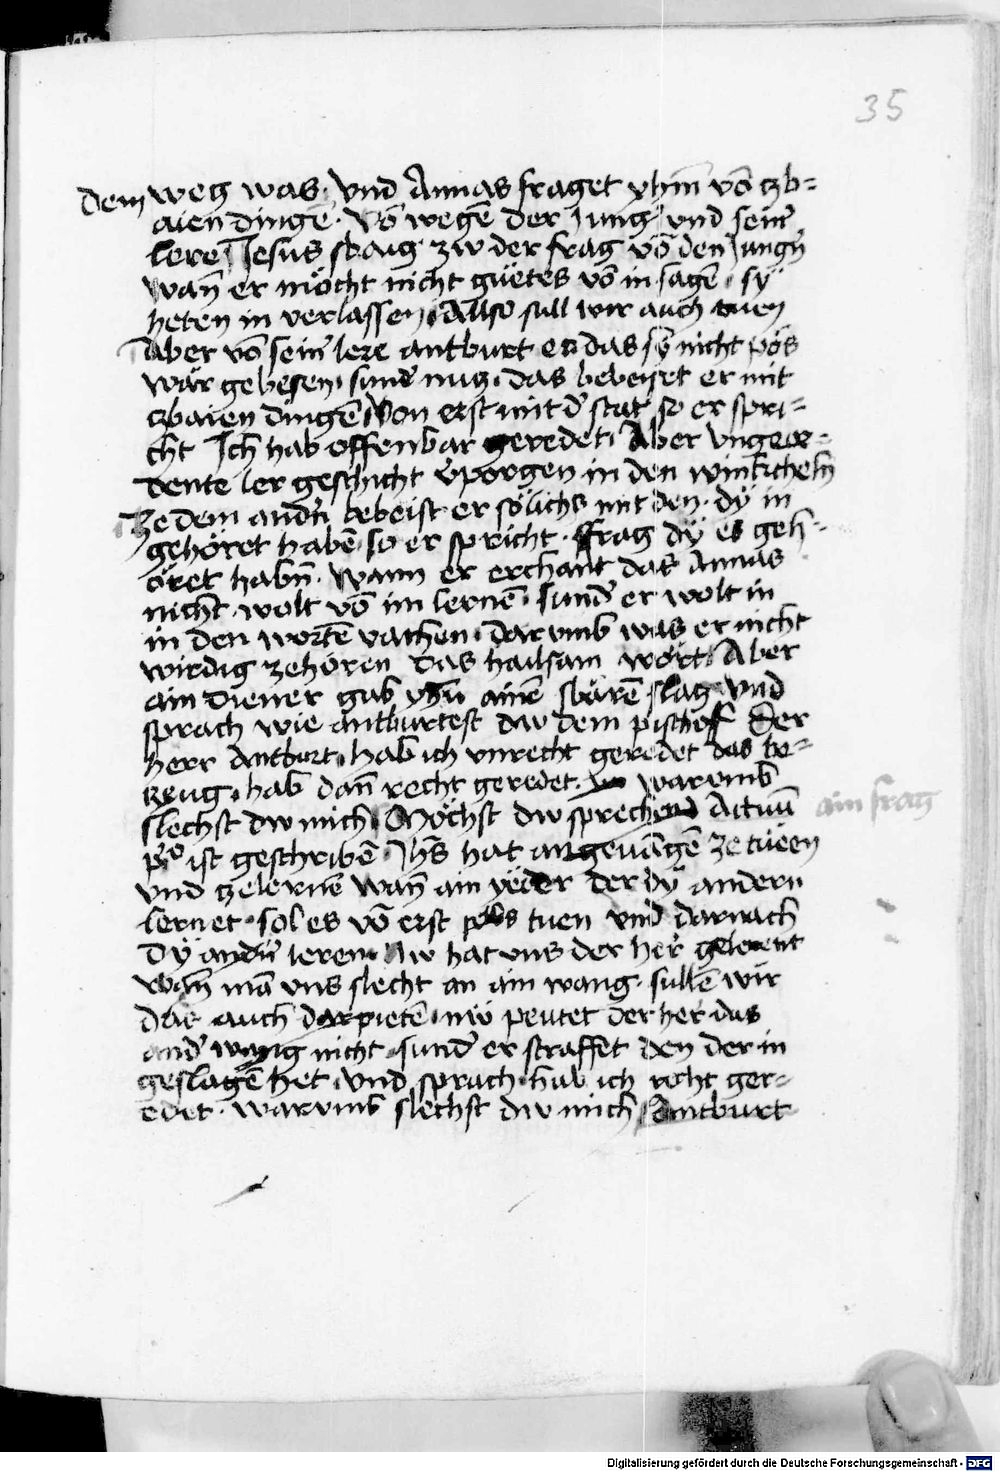 35
dem weg was. Vnd Annas fraget yhm̄ vō czb=
aien dingē. Vō wegē der Jung' vnd sein'
lere Jesus sbaig zw der frag vō den Jungn̄
wan̄ er möcht nicht güetes vō in sagē. sÿ
heten in verlassen. Allso sull wir auch tuen
Aber vō sein' lere antburt er das sy nicht pös
wär gebesen. sund' nucz. das bebeiset er mit
czbaien dingē Von erst mit d' stat so er spri=
cht Ich hab offenbar geredet. Aber vngeor=
dente ler geschicht v'porgen in den winkcheln
Ze dem andn̄ bebeist er sölichs mit den. dÿ in
gehöret habē. so er spricht. ffrag dÿ es geh=
öret habn̄. wann er erchant das Annas
nicht wolt vō im lernē. sund' er wolt in
in den wortē vachen. darumb was er nicht
wirdig zehören das hailsam wort. Aber
ain diener gab yhm ainē sbärē slag Vnd
sprach wie antburtest dw dem pischoff Der
herr Antburt. hab ich vnrecht geredet das be=
zeug. hab dan̄ recht geredet. warumb
slechst dw mich. Möchst dw sprechen Actuū
ain frag
p'o ist geschribē. Jhs̄ hat angeuāngē ze tueen
vnd czelernē wan̄ ain yeder der dÿ andern
lernet. sol es vō erst tuen vnd darnach
Dÿ andn̄ leren. Nw hat vns der her' gelernt
wan̄ mā vns slecht an ain wang. sullē wir
das auch darpietē. nw peutet der her' das
and' wang nicht. sund' er straffet den der in
geslagē het. vnd sprach. hab ich recht ger=
edet. warumb slechst dw mich. Antburt
Digitalisierung gefördert durch die Deutsche Forschungsgemeinschaft - DFG